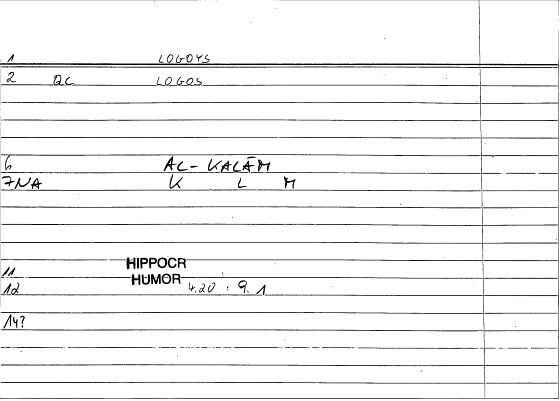 1 LOGOYS
2 QC LOGOS
6 AL-KALĀM
7NA K L M
HIPPOCR
11
HUMOR
12 4.20 : 9. 1
14?